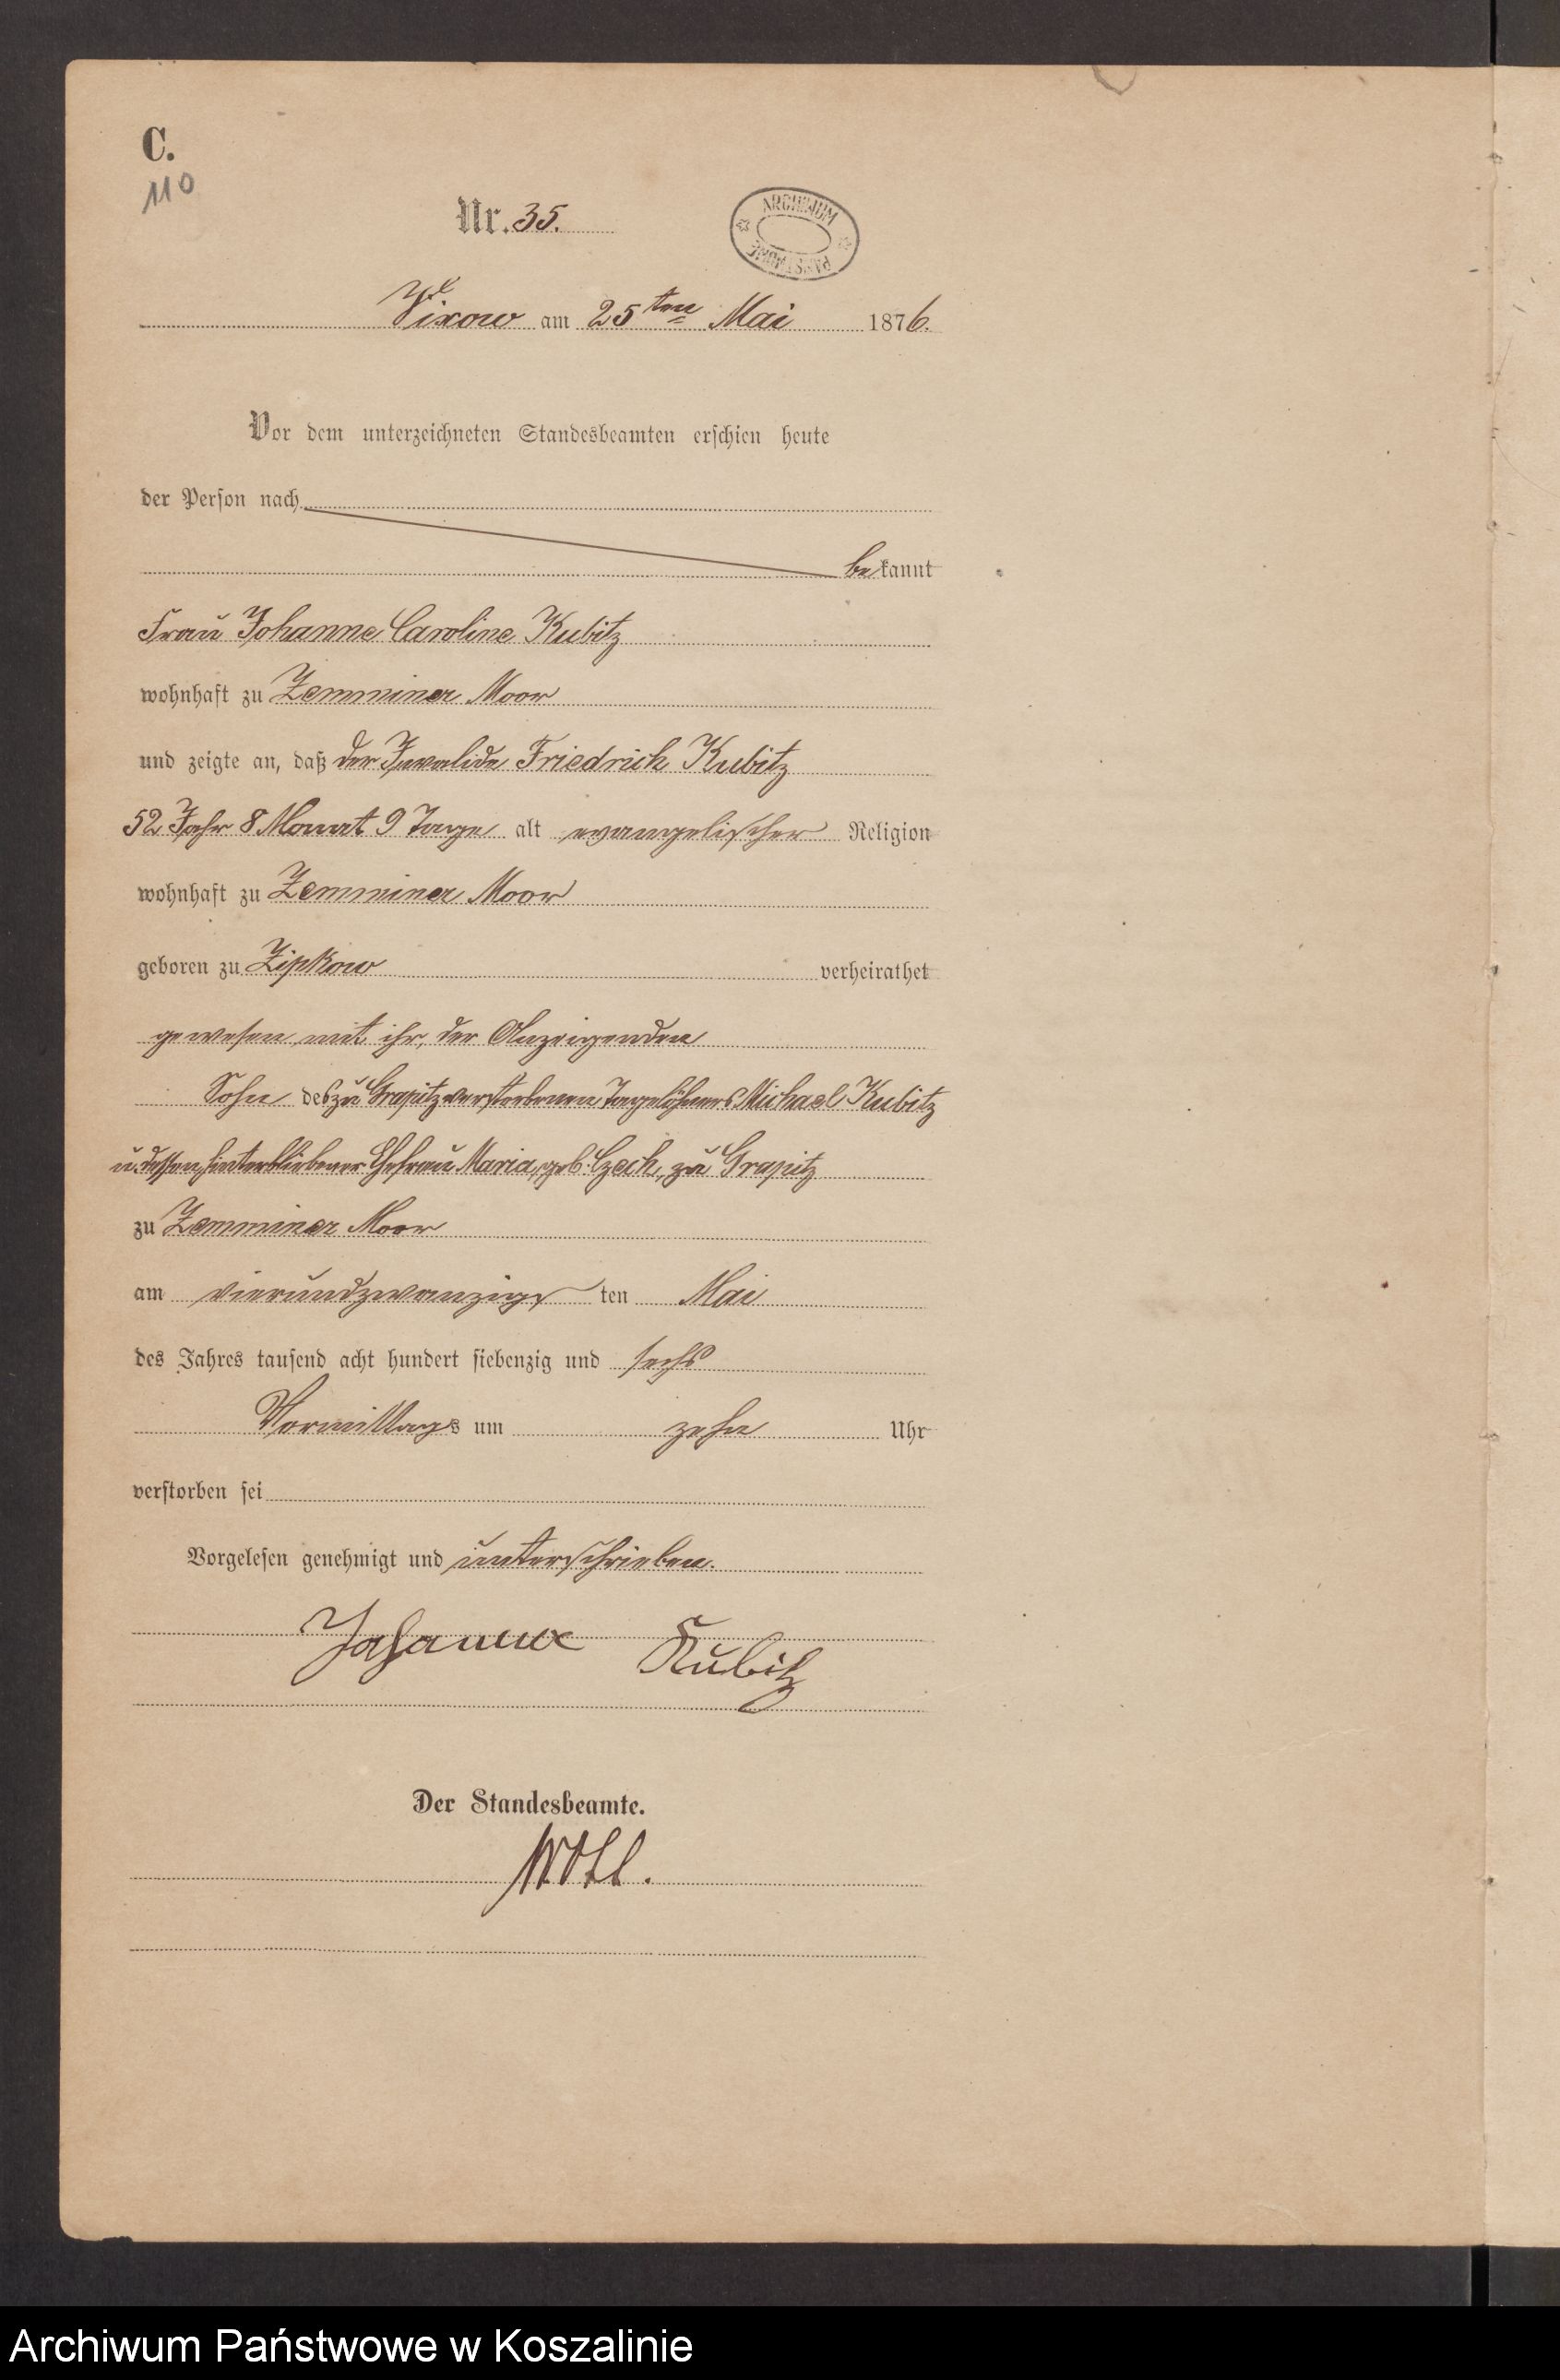 C.
110
Nr. 35.
ARCHIWUM
PAŃSTWOWE
Vixow am 25ten Mai 1876.
Vor dem unterzeichneten Standesbeamten erschien heute
der Person nach
bekannt
Frau Johanne Caroline Kubitz
wohnhaft zu Zemminer Moor
und zeigte an, daß der Invalide Friedrich Kubitz
52 Jahr 8 Monat 9 Tage alt evangelischer Religion
wohnhaft zu Zemminer Moor
geboren zu Zipkow verheirathet
gewesen mit ihr, der Anzeigenden
Sohn des zu Grapitz verstorbenen Tagelöhners Michael Kubitz
u. dessen hinterbliebener Ehefrau Maria, geb. Czech, zu Grapitz
zu Zemminer Moor
am vierundzwanzigsten Mai
des Jahres tausend acht hundert siebenzig und sechs
Vormittags um zehn Uhr
verstorben sei
Vorgelesen genehmigt und unterschrieben.
Johanne Kubitz
Der Standesbeamte.
Archiwum Państwowe w Koszalinie